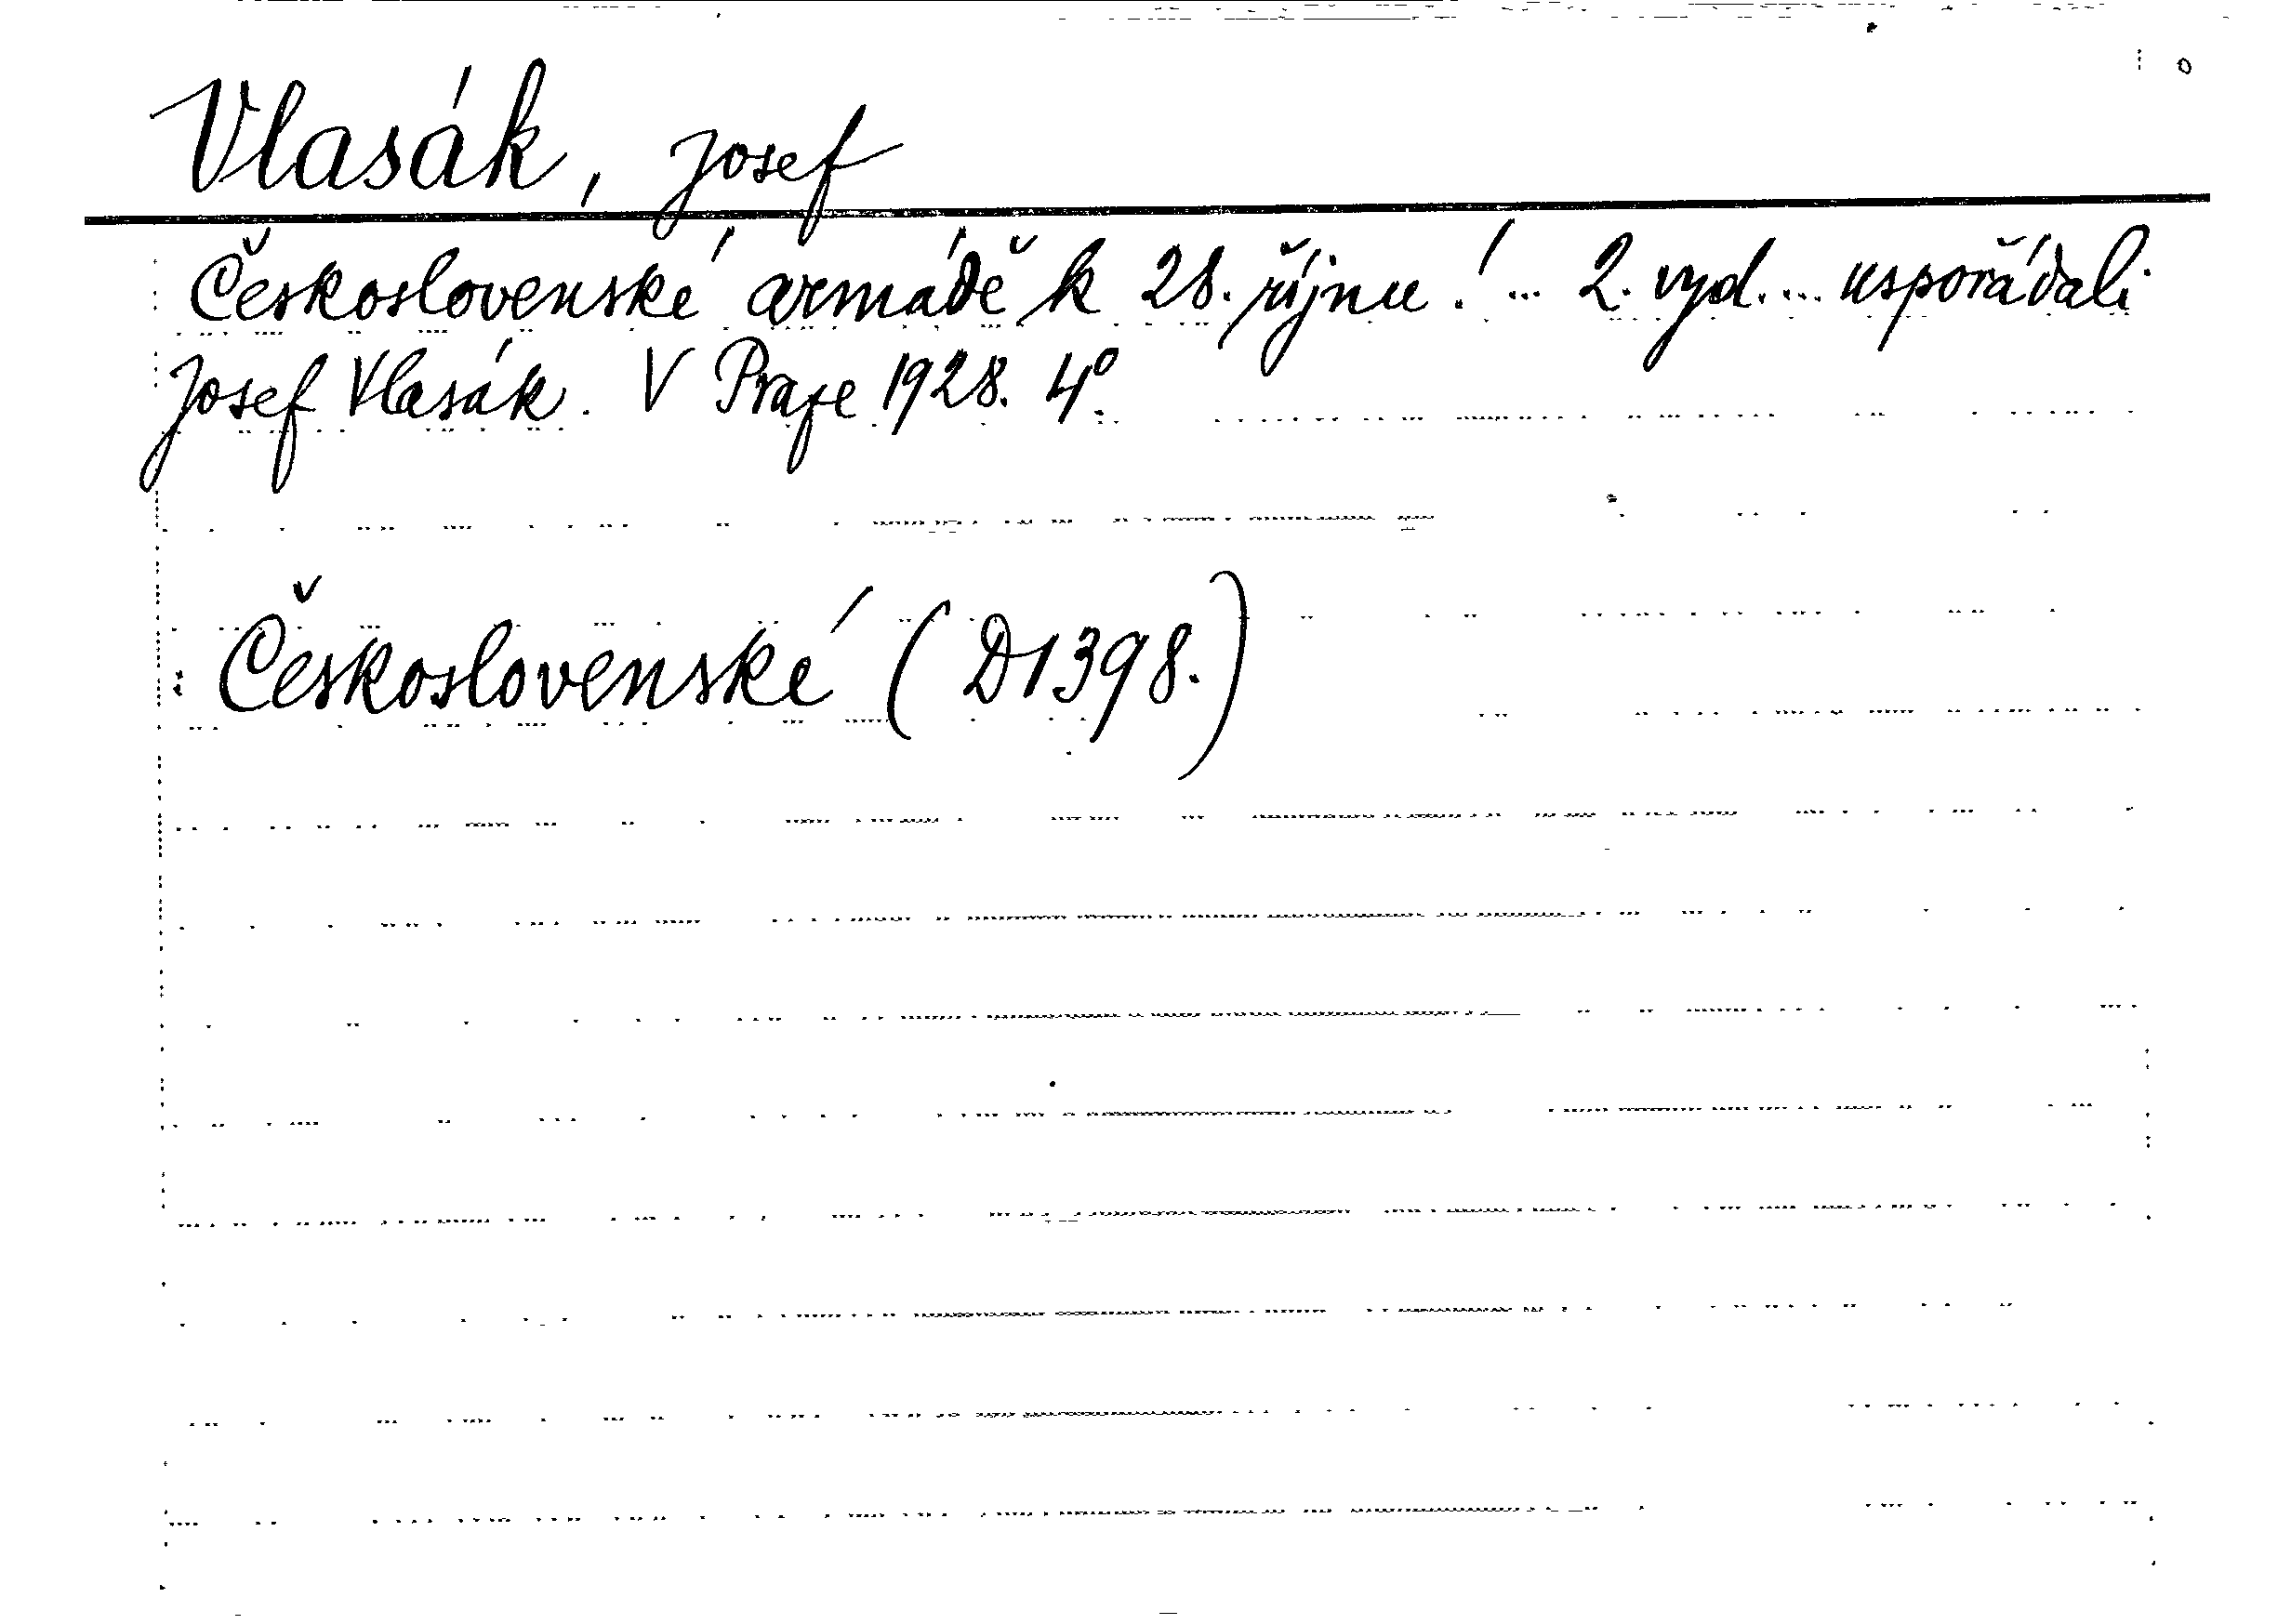 Vlasák, Josef
Československé armádě k 28. říjnu! ... 2. vyd. ... uspořádali
Josef Vlasák. V Praze 1928. 4°.
: Československé (D1398.)